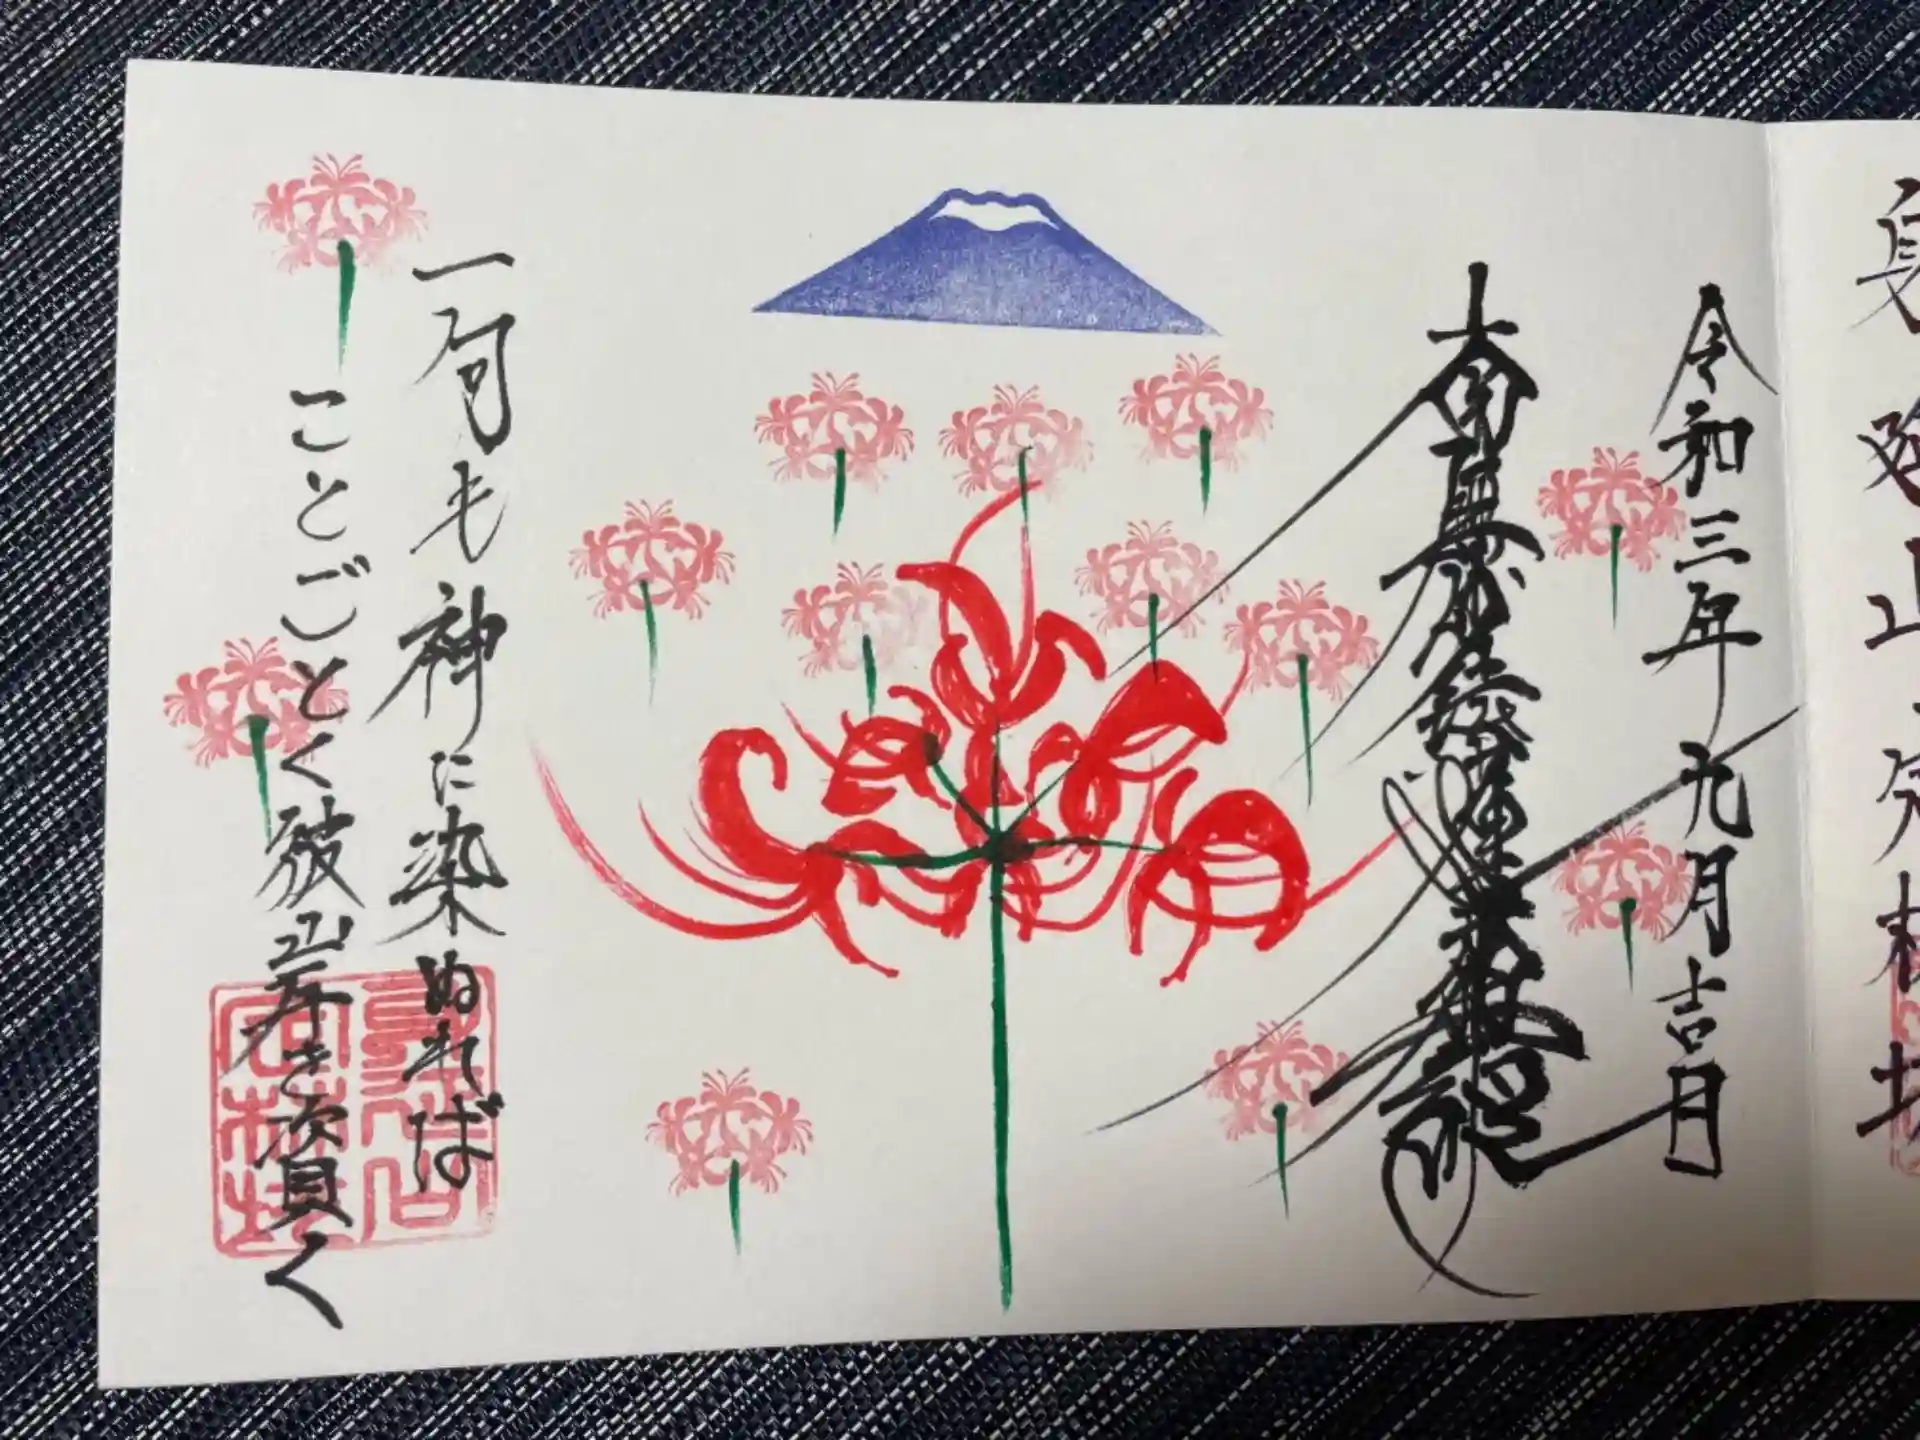 令和三年九月吉日
南無妙法蓮華経
一句も神に染ぬれば
ことごとく彼岸を資く
身延山